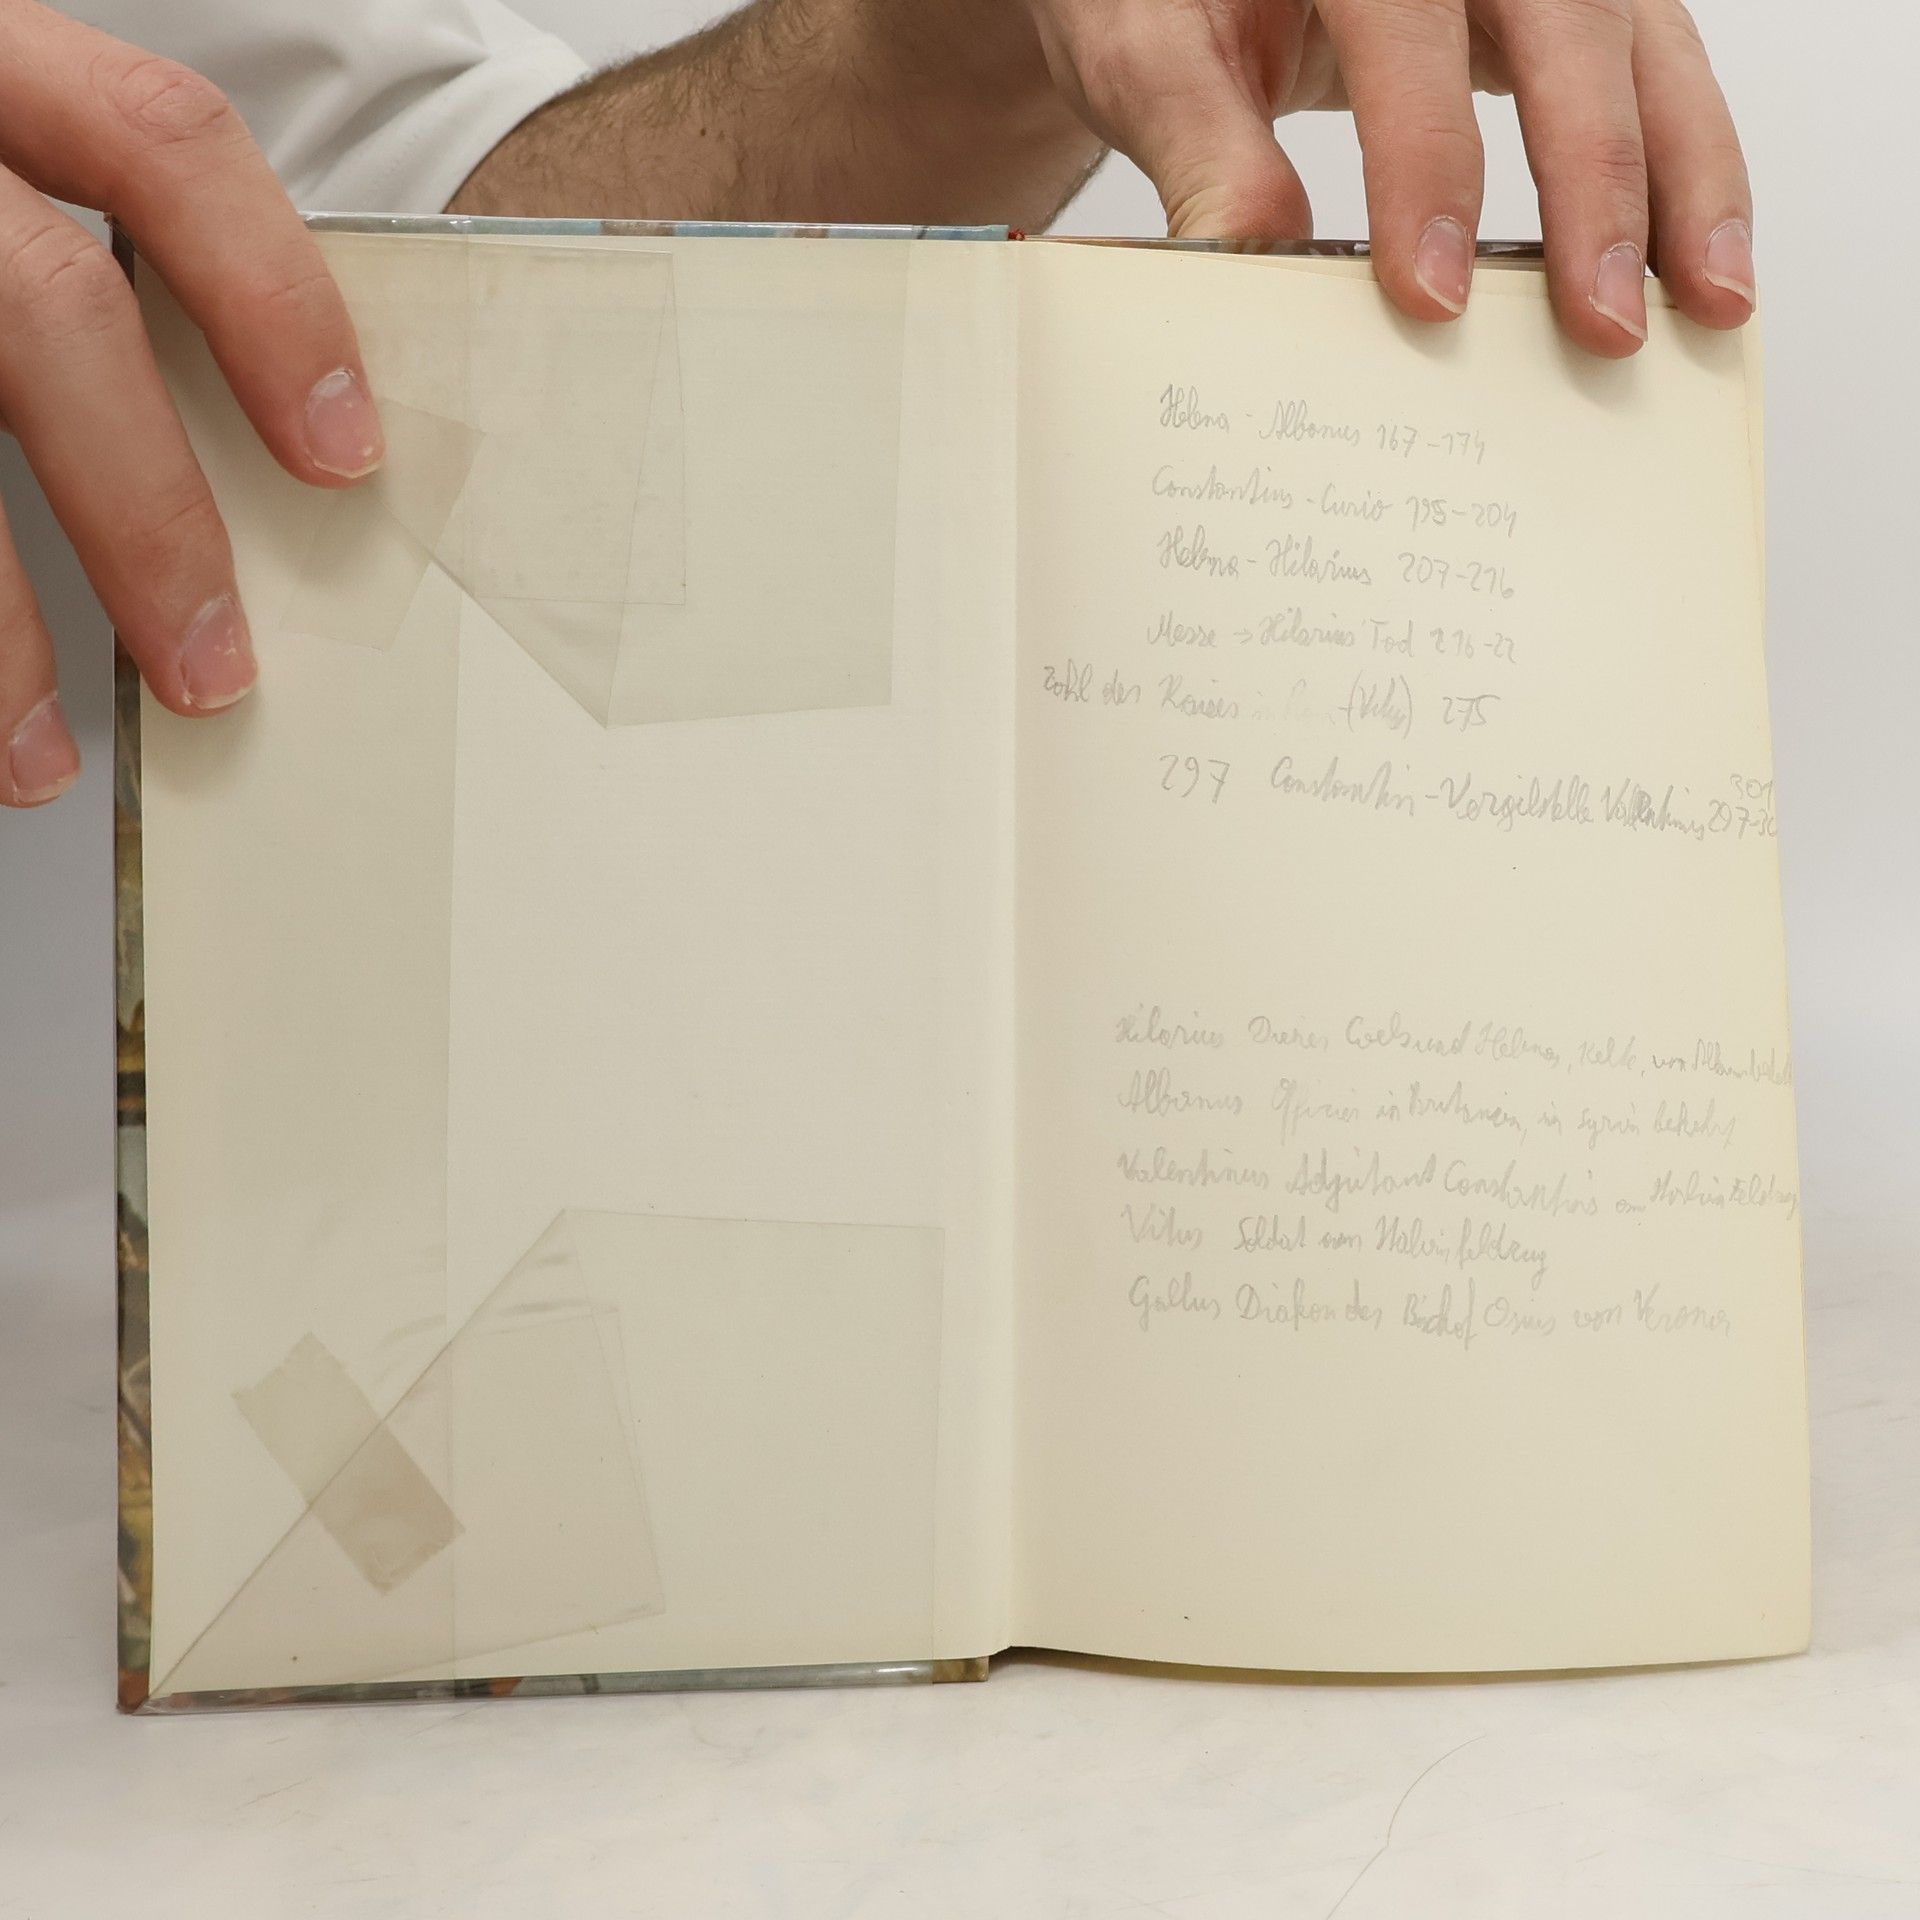 Helena - Albanus 167-174
Constantius - Curio 195-204
Helena - Hilarius 207-216
Messe → Hilarius' Tod 216-22
Zahl des Kaisers in (Vitus) 275
297 Constantin - Vergilstelle Valentinus 297-30
301
Hilarius Diener Coels und Helenas, Kelte, von Alban
Albanus Offizier in Britannien, in Syrien bekehrt
Valentinus Adjutant Constantins am
Vitus Soldat am Italienfeldzug
Gallus Diakon des Bischof Osius von Verona